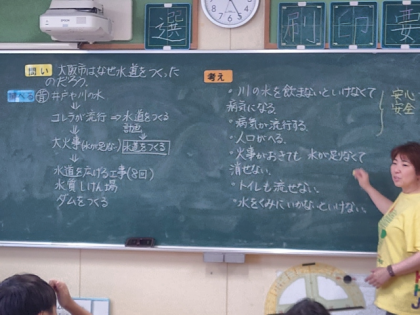 選
刷
印
要
問い 大阪市はなぜ水道をつくった
のだろう。
調べる 昔 井戸や川の水
↓
コレラが流行 ⇒ 水道をつくる
計画
↓
大火事(水が足りない) 水道をつくる
↓
水道を広げる工事(8回)
水質しけん場
ダムをつくる
考え
・川の水を飲まないといけなくて
病気になる。
・病気が流行する。
・人口がへる。
・火事がおきても 水が足りなくて
消せない。
・トイレも流せない。
・水をくみにいかないといけない。
安心
安全